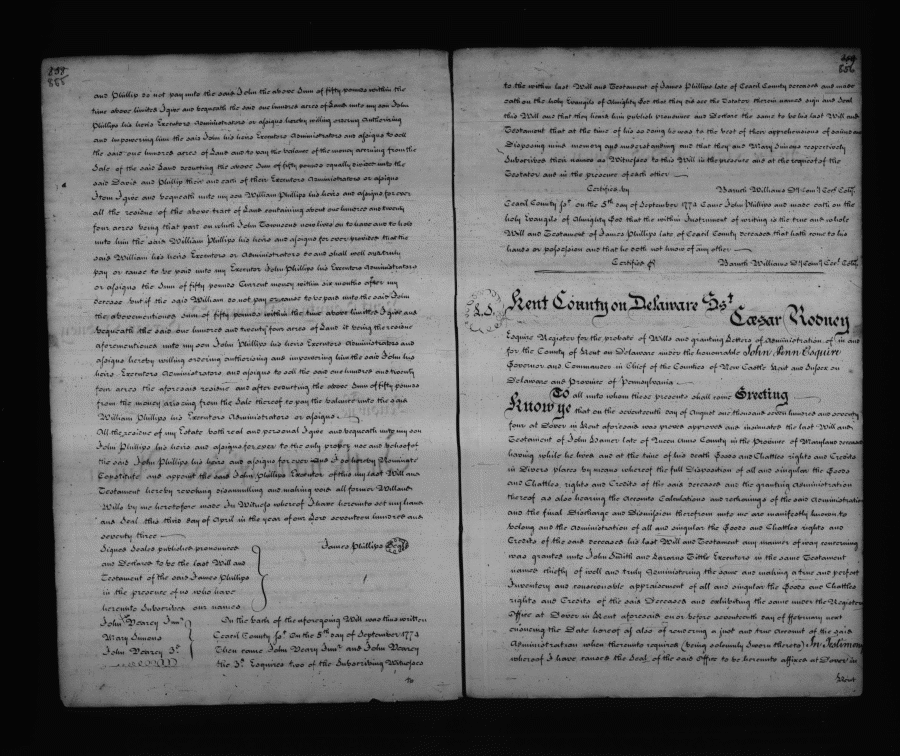 855
and Phillip do not pay unto the said John the above Sum of fifty pounds within the
time above limited I give and bequeath the said one hundred acres of Land unto my son John
Phillips his heirs Executors Administrators or assigns hereby willing ordering Authorizing
and impowering him the said John his heirs Executors Administrators and assigns to sell
the said one hundred acres of Land and to pay the ballance of the money accruing from the
Sale of the said Land deducting the above Sum of fifty pounds equally divided unto the
said David and Phillip their and each of their Executors Administrators or assigns
Item I give and bequeath unto my son William Phillips his heirs and assigns for ever
all the residue of the above tract of Land containing about one hundred and twenty
four acres being that part on which John Townsend now lives on to have and to hold
unto him the said William Phillips his heirs and assigns for ever provided that the
said William his heirs Executors or Administrators do and shall well and truly
pay or cause to be paid unto my Executor John Phillips his Executors Administrators
or assigns the Sum of fifty pounds Current money within six months after my
decease but if the said William do not pay or cause to be paid unto the said John
the abovementioned sum of fifty pounds within the time above limited I give and
bequeath the said one hundred and twenty four acres of Land it being the residue
aforementioned unto my son John Phillips his heirs Executors Administrators and
assigns hereby willing ordering authorising and impowering him the said John his
heirs Executors Administrators and assigns to sell the said one hundred and twenty
four acres the aforesaid residue and after deducting the above Sum of fifty pounds
from the money arising from the Sale thereof to pay the ballance unto the said
William Phillips his Executors Administrators or assigns
All the residue of my Estate both real and personal I give and bequeath unto my son
John Phillips his heirs and assigns for ever to the only proper use and behoof of
the said John Phillips his heirs and assigns for ever And I do hereby Nominate
Constitute and appoint the said John Phillips Executor of this my last Will and
Testament hereby revoking disannulling and making void all former Will and
Wills by me heretofore made In Witness whereof I have hereunto set my hand
and Seal this third day of April in the year of our Lord seventeen hundred and
seventy three
Signed Sealed published pronounced James Phillips Seal
and Declared to be the last Will and
Testament of the said James Phillips
in the presence of us who have
hereunto Subscribed our names
John Veazey Junr On the back of the aforegoing Will was thus written
Mary Simons Ceacil County Ss. On the 5th day of September 1774
John Veazey 3d. Then came John Veazy Junr and John Veazey
the 3d. Esquires two of the Subscribing Witnesses
to
856
to the within last Will and Testament of James Phillips late of Ceacil County deceased and made
oath on the holy Evangils of Almighty God that they did see the Testator therein named sign and Seal
this Will and that they heard him publish pronounce and Declare the same to be his last Will and
Testament that at the time of his so doing he was to the best of their apprehensions of sound and
Disposing mind memory and understanding and that they and Mary Simons respectively
Subscribed their names as Witnesses to this Will in the presence and at the request of the
Testator and in the presence of each other
Certified by Baruch Williams
Ceacil County Ss. On the 5th day of September 1774 Came John Phillips and made oath on the
holy Evangils of Almighty God that the within Instrument of writing is the true and whole
Will and Testament of James Phillips late of Ceacil County deceased that hath come to his
hands or possession and that he doth not know of any other
Certified Baruch Williams
L.S. Kent County on Delaware Sst.
Cæsar Rodney
Esquire Register for the probate of Wills and granting Letters of Administration of in and
for the County of Kent on Delaware under the honourable John Penn Esquire
Governor and Commander in Chief of the Counties of New Castle Kent and Sussex on
Delaware and Province of Pennsylvania
To all unto whom these presents shall come Greeting
Know ye that on the seventeenth day of August one thousand seven hundred and seventy
four at Dover in Kent aforesaid was proved approved and insinuated the last Will and
Testament of John late of Queen Anns County in the Province of Maryland deceased
having while he lived and at the time of his death Goods and Chattles rights and Credits
in Divers places by means whereof the full Disposition of all and singular the Goods
and Chattles, rights and Credits of the said deceased and the granting Administration
thereof as also hearing the Accounts Calculations and reckonings of the said Administration
and the final Discharge and Dismission therefrom unto me are manifestly known to
belong and the Administration of all and singular the Goods and Chattles rights and
Credits of the said deceased his last Will and Testament any manner of way concerning
was granted unto John Smith and Tittle Executors in the same Testament
named chiefly of well and truly Administering the same and making a true and perfect
Inventory and conscionable appraisement of all and singular the Goods and Chattles
rights and Credits of the said Deceased and exhibiting the same under the Registers
Office at Dover in Kent aforesaid on or before seventeenth day of February next
ensueing the Date hereof as also of rendering a just and true Account of the said
Administration when thereunto required (being solemnly sworn thereto) In Testimony
whereof I have caused the Seal of the said Office to be hereunto affixed at Dover in
Kent